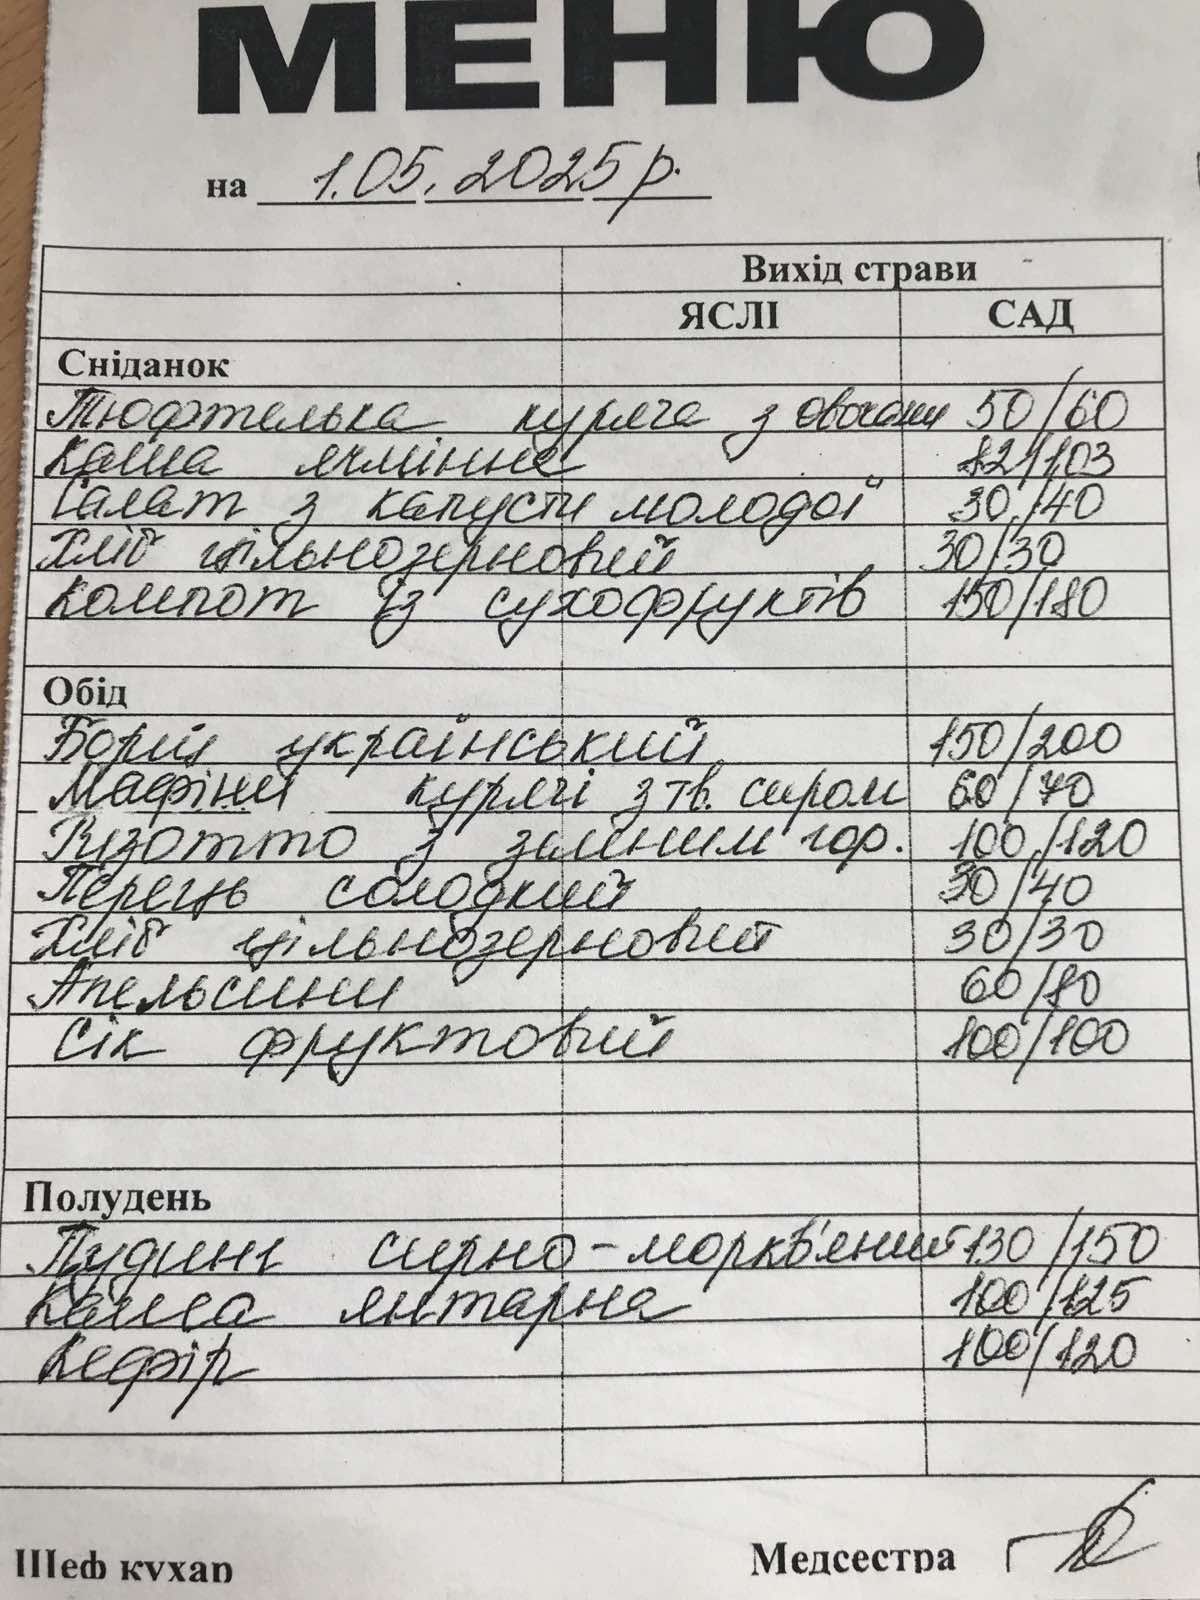 МЕНЮ
на 1.05.2025р.
Вихід страви
ЯСЛІ САД
Сніданок
Тюфтелька куряча з овочами 50/60
Каша ячмінна 82/103
Салат з капусти молодої 30/40
Хліб цільнозерновий 30/30
Компот із сухофруктів 150/180
Обід
Борщ український 150/200
Мафіни курячі з тв. сиром 60/70
Різотто з зеленим гор. 100/120
Перець солодкий 30/40
Хліб цільнозерновий 30/30
Апельсини 60/80
Сік фруктовий 100/100
Полудень
Пудинг сирно-морквяний 130/150
Каша янтарна 100/125
Кефір 100/120
Шеф кухар Медсестра